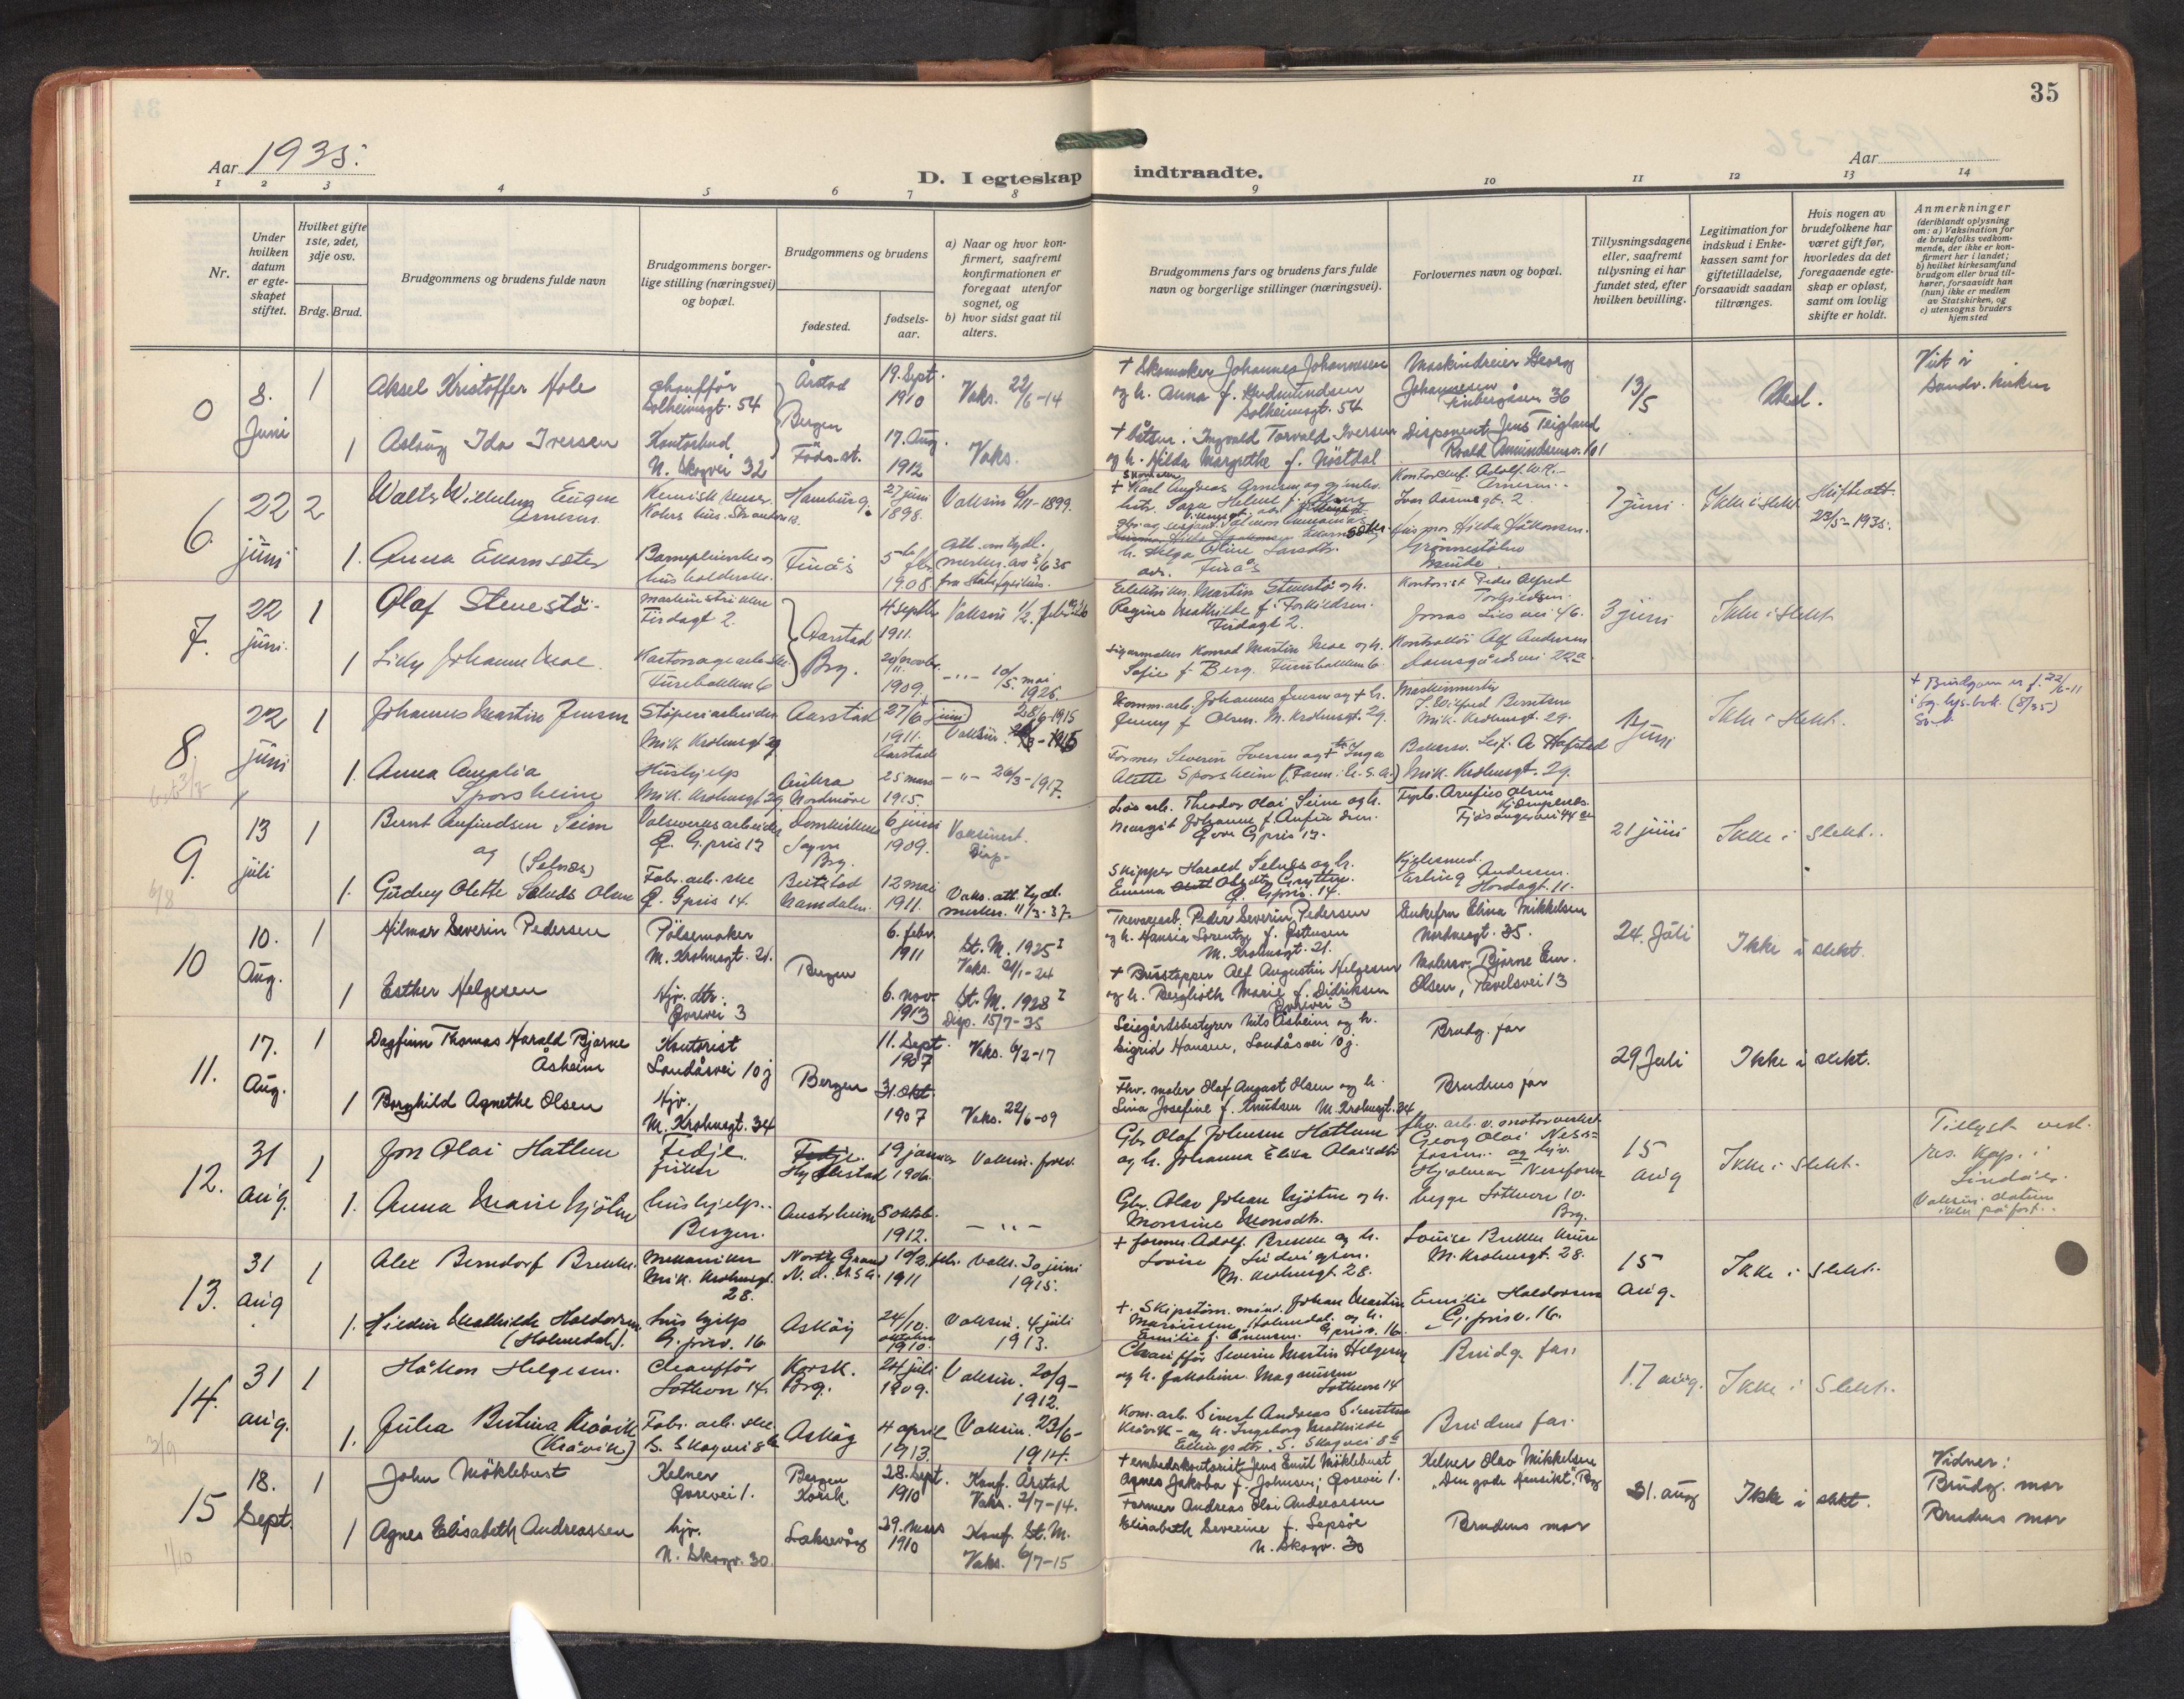 35
Aar 1935.
D. I egteskap
indtraadte.
Aar
1 2 3 4 5 6 7 8 9 10 11 12 13 14
Nr.
Under hvilken datum er egteskapet stiftet.
Hvilket gifte 1ste, 2det, 3dje osv.
Brdg. Brud.
Brudgommens og brudens fulde navn
Brudgommens borgerlige stilling (næringsvei) og bopæl.
Brudgommens og brudens
fødested.
fødselsaar.
a) Naar og hvor konfirmert, saafremt konfirmationen er foregaat utenfor sognet, og
b) hvor sidst gaat til alters.
Brudgommens fars og brudens fars fulde navn og borgerlige stillinger (næringsvei).
Forlovernes navn og bopæl.
Tillysningsdagene eller, saafremt tillysning ei har fundet sted, efter hvilken bevilling.
Legitimation for indskud i Enkekassen samt for giftetilladelse, forsaavidt saadan tiltrænges.
Hvis nogen av brudefolkene har været gift før, hvorledes da det foregaaende egteskap er opløst, samt om lovlig skifte er holdt.
Anmerkninger
(deriblandt oplysning om: a) Vaksination for de brudefolks vedkommende, der ikke er konfirmert her i landet; b) hvilket kirkesamfund brudgom eller brud tilhører, forsaavidt han (hun) ikke er medlem av Statskirken, og c) utensogns bruders hjemsted
0
8. Juni
1
Aksel Kristoffer Hole
chauffør
Solheimsgt. 54
Årstad
Bergen
19. Sept. 1910
Vaks. 22/6-14
+ Skomaker Johannes Johannesen
og h. Anna f. Gudmundsen
Solheimsgt. 54
Maskindreier Georg
Johannesen
36
13/5
Viet i
Sandv. kirken
1
Aslaug Ida Iversen
Kontorbud
N. Skogvei 32
Føds.st.
17. Aug. 1912
Vaks.
+ båtsm. Ingvald Torvald Iversen
og h. Hilda Margrethe f. Nøstdal
Disponent Jens Teigland
Roald Amundsensv. 101
6.
22 juni
2
Walter Wilhelm Eugen
Arnesen
Hamburg.
27 juni 1898.
Vaksin 6/11-1899.
+ Karl Andreas Arnesen
Kontorchef. Adolf W. R.
Arnesen
Ivar Aasens gt. 2
7 juni
Ikke i slekt
23/5-1935.
1.
Anna Ekornsæter
Barnepleierske og
husholderske.
Finås
5te febr. 1908.
h. Helga Oline Larsdtr.
adr. Finås
Hilda Håkonsen.
Grønnestølen
Minde
7.
22 juni.
1
Olaf Stenestø.
Tirsdagt 2.
Aarstad
Brg.
4 septb. 1911.
Elektriker Martin Stenestø og h.
Regine Mathilde f. Torkildsen.
Kontorist Peder Alfred
Torkildsen.
Jonas Lies vei 46.
3 juni
Ikke i slekt.
1
Lilly Johanne Moe.
Kartonagearb.ske.
20/novbr. 11. 1909.
10/5. mai 1926.
Sigarmaker Konrad Martin Moe og h.
Sofie f. Berg.
Kontrollør Alf Andersen
22a
8.
22 juni
1
Johannes Martin Jensen
Støperiarbeider
Mik. Krohnsgt 29
Aarstad
27/6 (juni) 1911.
Aarstad
28/6-1915
Vaksin.
Komm.arb. Johannes Jensen og + h.
Jenny f. Olsen. M. Krohnsgt. 29.
Maskinmester
J. Wilfred Berntsen
Mik. Krohnsgt. 29.
1 juni
Ikke i slekt.
+ Brudgom er f. 22/6-11
i flg. lys. bok. (8/35)
1.
Anna Amalia
Sporsheim
Hushjelp
Mik. Krohnsgt 29
Aukra
Nordmøre
25 mars 1915.
-"- 26/3-1917.
Former Severin Iversen og + h. Inga
Alette Sporsheim (Faren: U.S.A.)
Bakersv. Leif A Hafstad
Mik. Krohnsgt. 29.
9.
13 juli
1
Bernt Anfindsen Seim
og
Valseverksarbeider
Q. G.pris 13
Domkirkens
Sogn
Brg.
6 juni 1909.
Vaksinert.
Disp.
Løs arb. Theodor Olai Seim og h.
Margit Johanne f. Anfindsen.
Øvre G.pris 13.
Fyrb. Arnfius Olsen
21 juni
Ikke i slekt.
6/8
1.
(Selnæs)
Gudny Olette Selnes Olsen
Fabr. arb. ske
Ø. G.pris 14.
Beitstad
Namdalen.
12 mai 1911.
Vaks. att. tydl.
merker. 11/3-37.
Skipper Harald Selnæs og h.
Emma
Ø. G.pris. 14.
Kjelesmed.
Erling Andersen.
Hordagt. 11.
10
10. Aug.
1
Hilmar Severin Pedersen
Pølsemaker
M. Krohnsgt. 21.
Bergen
6. febr. 1911
St. M. 1925 I
Vaks. 21/1-24
Trevarearb. Peder Severin Pedersen
og h. Hansia Lorentze f. Østensen
M. Krohnsgt. 21.
Enkefru Elina Mikkelsen
Nordnesgt. 35.
24. Juli
Ikke i slekt.
1
Esther Helgesen
Hjv. dtr.
Øvrevei 3
6. nov. 1913
St. M. 1928 I
Disp. 15/7-35
+ Brisstapper Alf Augustin Helgesen
og h. Berglioth Marie f. Didriksen
Øvrevei 3
Malersv. Bjarne Em.
Olsen, Tavelsvei 13
11.
17. Aug.
1
Dagfinn Thomas Harald Bjarne
Åsheim
Kontorist
Landåsvei 10 j
Bergen
11. Sept. 1907
Vaks. 6/2-17
Leiegårdsbestyrer Nils Åsheim og h.
Sigrid Hansen, Landåsvei 10 j.
Brudg. far
29 Juli
Ikke i slekt.
1
Borghild Agnethe Olsen
Hjv.
M. Krohnsgt. 34
31. Okt. 1907
Vaks. 22/6-09
Fhv. maler Olaf August Olsen og h.
Lina Josefine f. Knudsen M. Krohnsgt. 34
Brudens far
12.
31 aug.
1
Jon Olai Hatlem
Fedje.
fisker
19 januar 1906.
Vaksin. forev.
Gbr. Olaf Johnsen Hatlem
og h. Johanna Elika Olaisdtr
Georg Olai Nese-
fossen. og hjv.
Hjalmar Nesefossen
begge Sotheon 10.
Brg.
15 aug
Ikke i slekt.
Tillyst ved.
res. kap. i
Lindås.
Vaksin. datum
ikke på fort.
1.
Anna Marie Njøten
hushjelp..
Bergen.
Austrheim
8 oktob. 1912.
-"-
Gbr. Olav Johan Njøten og h.
Monsine Monsdtr.
13.
31 aug
1
Alex Berndorf Brekke.
Mekaniker
Mik. Krohnsgt. 28.
N. d. U.S.A.
10/2. febr. 1911
Vaks. 30 juni 1915.
+ former Adolf. Brekke og h.
Lovise f. Ludvigsen.
M. Krohnsgt 28.
Louise Brekke
M. Krohnsgt. 28.
15 aug.
Ikke i slekt.
1.
Hildur Mathilde Haldorsen
(Holmedal).
hushjelp
G. prisv. 16
Askøy
24/10. oktober 1910.
Vaksin. 4 juli 1913.
+. Skipstøm. mand. Johan Martin
Emilie f. G.prisv. 16.
Emilie Haldorsen
G. prisv. 16.
14.
31 aug.
1
Håkon Helgesen.
Chauffør
Sotheon 14.
Korsk.
Brg.
24 juli 1909.
Vaksin. 20/9-1912.
Chauffør Severin Martin Helgesen
og h. Jakobine Magnussen
Sotheon 14
Brudg. far.
17 aug.
Ikke i slekt.
3/9
1.
Julia Bertina Kråvik
(Kråvik)
Fabr. arb. ske
S. Skogvei 8b
Askøy
4 april 1913.
Vaksin. 23/6-1914.
Kom. arb. Sivert Andreas Sivertsen
Kråvik - og h. Ingeborg Mathilde
Ellingsdtr. S. Skogvei 8b
Brudens far.
15
18. Sept.
1
John Møklebust
Kelner
Øvrevei 1.
Bergen
Korsk.
28. Sept. 1910
Konf. Årstad
Vaks. 2/7-14.
+ embedskontorist Jens Emil Møklebust
Agnes Jakoba f. Johnsen; Øvrevei 1.
Kelner Olav Mikkelsen
"Den gode hensikt", Brg
31. aug
Ikke i slekt.
Vidner:
Brudg. mor
Brudens mor
1/10
1
Agnes Elisabeth Andreassen
hjv.
N. Skogv. 30.
Laksevåg
29. Mars 1910
Konf. St. M.
Vaks. 6/7-15
Former Andreas Olai Andreassen
Elisabeth Severine f. Sepsøe
N. Skogv. 30
Brudens mor